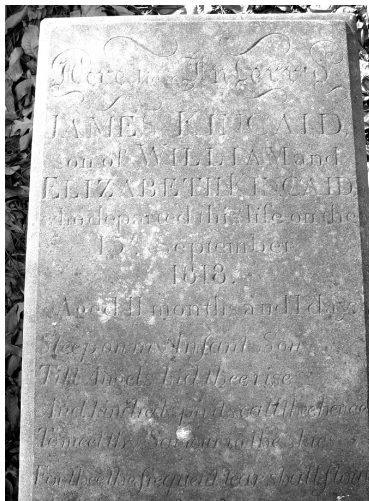 Here are Interr'd
JAMES KINCAID,
son of WILLIAM and
ELIZABETH KINCAID
who departed this life on the
13th September
1818.
Aged 11 months and 1 day.
Sleep on my Infant Son
Till bid thee rise
And kindred spirits call thee hence
To meet thy Saviour in the skies
For thee the frequent tear shall flow